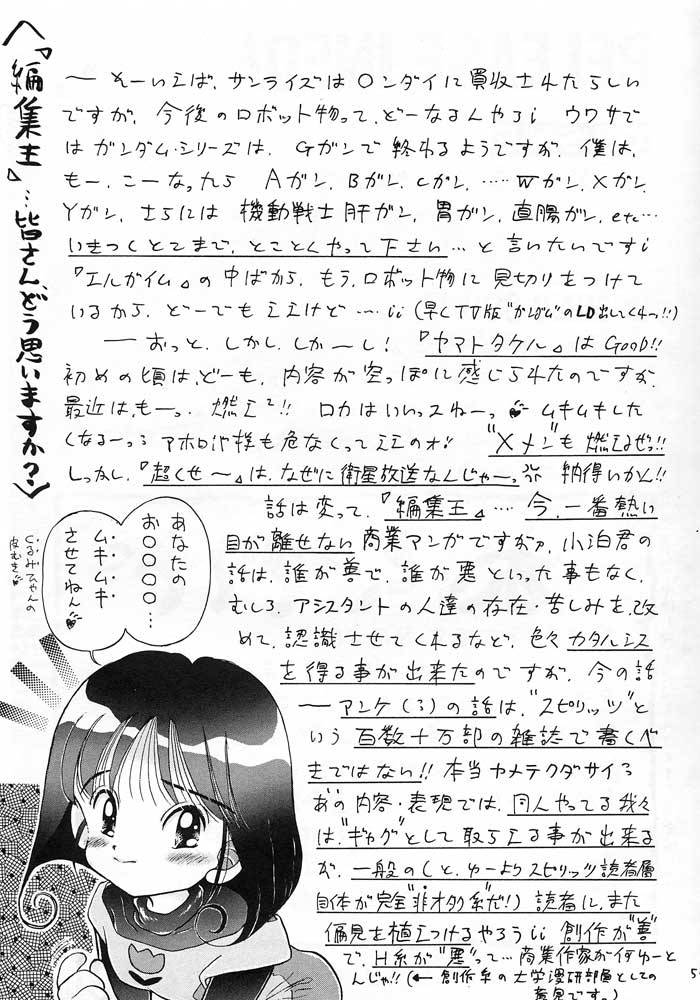 〈『編集王』…皆さん、どう思いますか?〉
― そーいえば、サンライズは○ンダイに買収されたらしい
ですが、今後のロボット物って、どーなるんやろ; ウワサで
はガンダム・シリーズは、Gガンで終わるようですが、僕は、
もー、こーなったら Aガン、Bガン、Cガン、……Wガン、Xガン、
Yガン、さらには 機動戦士肝ガン、胃ガン、直腸ガン、etc…
いきつくとこまで、とことんやって下さい…と言いたいです;
『エルガイム』の中ばから、もう、ロボット物に見切りをつけて
いるから、どーでもええけど…;;(早くTV版"かぼちゃ"のLD出してくれっ!!)
―おっと、しかし、しか〜し!『ヤマトタケル』はGooD!!
初めの頃は、どーも、内容が空っぽに感じられたのですが、
最近は、もーっ、燃えて!!ロカはいいっスねーっ ムキムキした
くなるーっ; アホロ?様も危なくってええのォ!!"Xメン"も燃えるぜっ!!
しっかし、『超くせ〜』は、なぜに衛星放送なんじゃーっ 納得いかん!!
話は変って、『編集王』…今、一番熱い
目が離せない商業アンガですがァ、小泊君の
話は、誰が善で、誰が悪といった事もなく、
むしろ、アシスタントの人達の存在・苦しみを、改
めて、認識させてくれるなど、色々カタルシス
を得る事が出来たのですが、今の話
―アンケ(3)の話は、"スピリッツ"と
いう百数十万部の雑誌で書くべ
きではない!!本当カメテクダサイ;
あの内容・表現では、同人やってる我々
は、"ギャグ"として取らえる事が出来る
が、一般の(と、ゆーよりスピリッツ読者層
自体が完全"非オタク系"だ!)読者に、また
偏見を植えつけるやろう;;創作が"善"
で、H系が"悪"って…商業作家が何ゆーと
んじゃ!!(←創作系の大学漫研部員としての
意見です。)
5